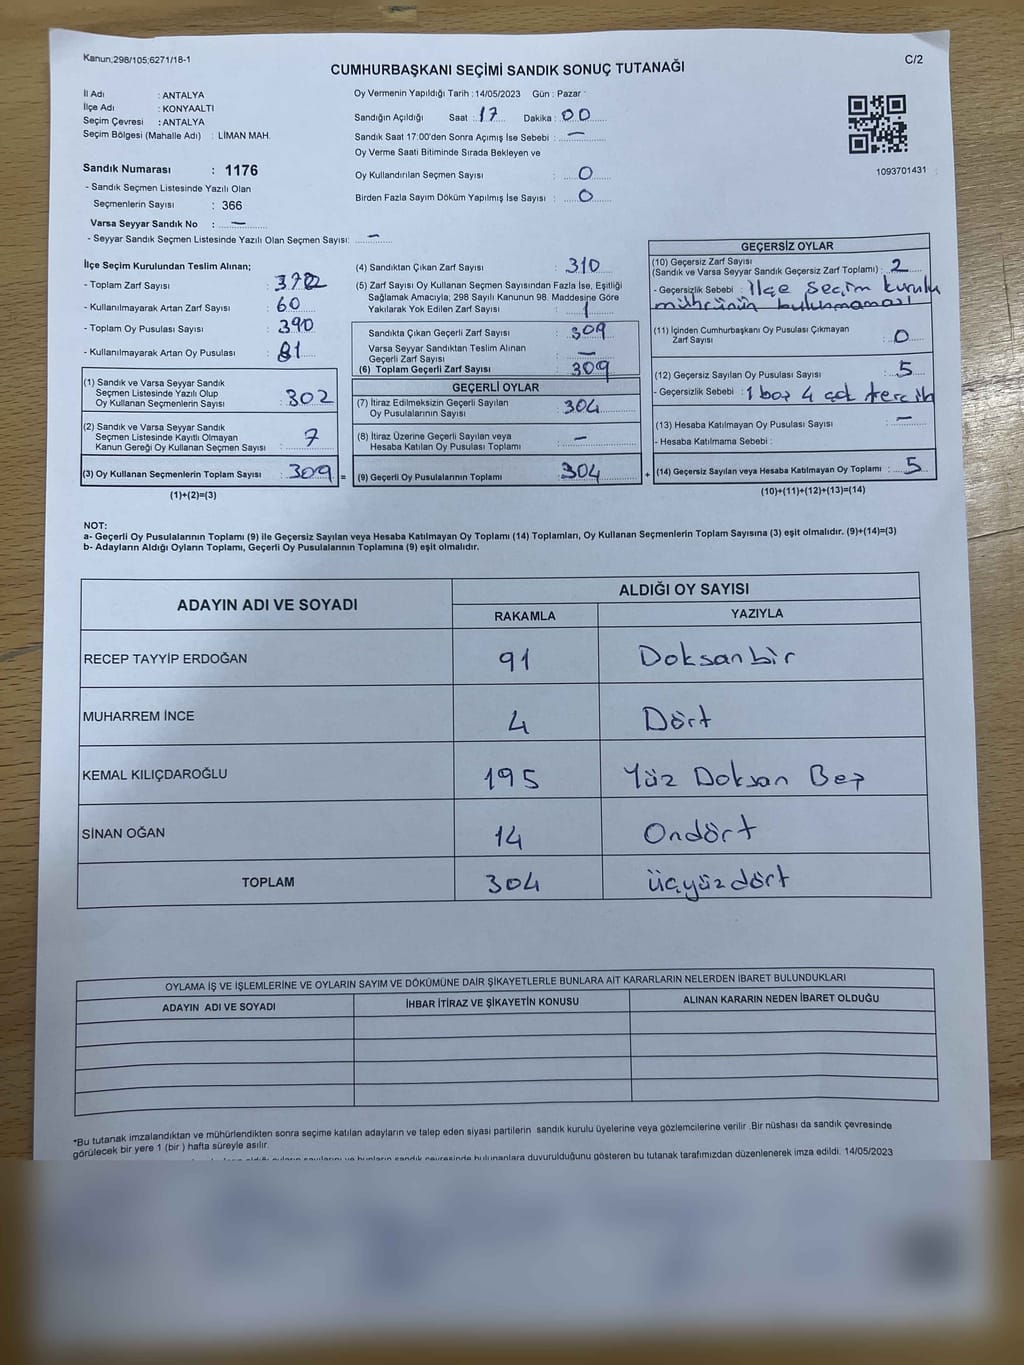 Kanun;298/105;6271/18-1
C/2
CUMHURBAŞKANI SEÇİMİ SANDIK SONUÇ TUTANAĞI
İl Adı : ANTALYA
İlçe Adı : KONYAALTI
Seçim Çevresi : ANTALYA
Seçim Bölgesi (Mahalle Adı) : LİMAN MAH.
Sandık Numarası : 1176
- Sandık Seçmen Listesinde Yazılı Olan
Seçmenlerin Sayısı : 366
Varsa Seyyar Sandık No : —
- Seyyar Sandık Seçmen Listesinde Yazılı Olan Seçmen Sayısı: —
Oy Vermenin Yapıldığı Tarih : 14/05/2023 Gün : Pazar
Sandığın Açıldığı Saat : 17 Dakika : 00
Sandık Saat 17:00'den Sonra Açımış İse Sebebi : —
Oy Verme Saati Bitiminde Sırada Bekleyen ve
Oy Kullandırılan Seçmen Sayısı : 0
Birden Fazla Sayım Döküm Yapılmış İse Sayısı : 0
1093701431
İlçe Seçim Kurulundan Teslim Alınan;
- Toplam Zarf Sayısı :
- Kullanılmayarak Artan Zarf Sayısı : 60
- Toplam Oy Pusulası Sayısı : 390
- Kullanılmayarak Artan Oy Pusulası : 81
(1) Sandık ve Varsa Seyyar Sandık
Seçmen Listesinde Yazılı Olup
Oy Kullanan Seçmenlerin Sayısı : 302
(2) Sandık ve Varsa Seyyar Sandık
Seçmen Listesinde Kayıtlı Olmayan
Kanun Gereği Oy Kullanan Seçmen Sayısı : 7
(3) Oy Kullanan Seçmenlerin Toplam Sayısı : 309 =
(1)+(2)=(3)
(4) Sandıktan Çıkan Zarf Sayısı : 310
(5) Zarf Sayısı Oy Kullanan Seçmen Sayısından Fazla İse, Eşitliği
Sağlamak Amacıyla; 298 Sayılı Kanunun 98. Maddesine Göre
Yakılarak Yok Edilen Zarf Sayısı : 1
Sandıkta Çıkan Geçerli Zarf Sayısı : 309
Varsa Seyyar Sandıktan Teslim Alınan
Geçerli Zarf Sayısı : —
(6) Toplam Geçerli Zarf Sayısı : 309
GEÇERLİ OYLAR
(7) İtiraz Edilmeksizin Geçerli Sayılan
Oy Pusulalarının Sayısı : 304
(8) İtiraz Üzerine Geçerli Sayılan veya
Hesaba Katılan Oy Pusulası Toplamı : —
(9) Geçerli Oy Pusulalarının Toplamı : 304 +
GEÇERSİZ OYLAR
(10) Geçersiz Zarf Sayısı
(Sandık ve Varsa Seyyar Sandık Geçersiz Zarf Toplamı) : 2
- Geçersizlik Sebebi : İlçe Seçim kurulu
mührünün bulunmaması
(11) İçinden Cumhurbaşkanı Oy Pusulası Çıkmayan
Zarf Sayısı : 0
(12) Geçersiz Sayılan Oy Pusulası Sayısı : 5
- Geçersizlik Sebebi : 1 boş 4 çok tercih
(13) Hesaba Katılmayan Oy Pusulası Sayısı : —
- Hesaba Katılmama Sebebi :
(14) Geçersiz Sayılan veya Hesaba Katılmayan Oy Toplamı : 5
(10)+(11)+(12)+(13)=(14)
NOT:
a- Geçerli Oy Pusulalarının Toplamı (9) ile Geçersiz Sayılan veya Hesaba Katılmayan Oy Toplamı (14) Toplamları, Oy Kullanan Seçmenlerin Toplam Sayısına (3) eşit olmalıdır. (9)+(14)=(3)
b- Adayların Aldığı Oyların Toplamı, Geçerli Oy Pusulalarının Toplamına (9) eşit olmalıdır.
ADAYIN ADI VE SOYADI ALDIĞI OY SAYISI
RAKAMLA YAZIYLA
RECEP TAYYİP ERDOĞAN 91 Doksanbir
MUHARREM İNCE 4 Dört
KEMAL KILIÇDAROĞLU 195 Yüz Doksan Beş
SİNAN OĞAN 14 Ondört
TOPLAM 304 üçyüzdört
OYLAMA İŞ VE İŞLEMLERİNE VE OYLARIN SAYIM VE DÖKÜMÜNE DAİR ŞİKAYETLERLE BUNLARA AİT KARARLARIN NELERDEN İBARET BULUNDUKLARI
ADAYIN ADI VE SOYADI İHBAR İTİRAZ VE ŞİKAYETİN KONUSU ALINAN KARARIN NEDEN İBARET OLDUĞU
*Bu tutanak imzalandıktan ve mühürlendikten sonra seçime katılan adayların ve talep eden siyasi partilerin sandık kurulu üyelerine veya gözlemcilerine verilir .Bir nüshası da sandık çevresinde
görülecek bir yere 1 (bir ) hafta süreyle asılır.
sandık çevresinde bulunanlara duyurulduğunu gösteren bu tutanak tarafımızdan düzenlenerek imza edildi. 14/05/2023